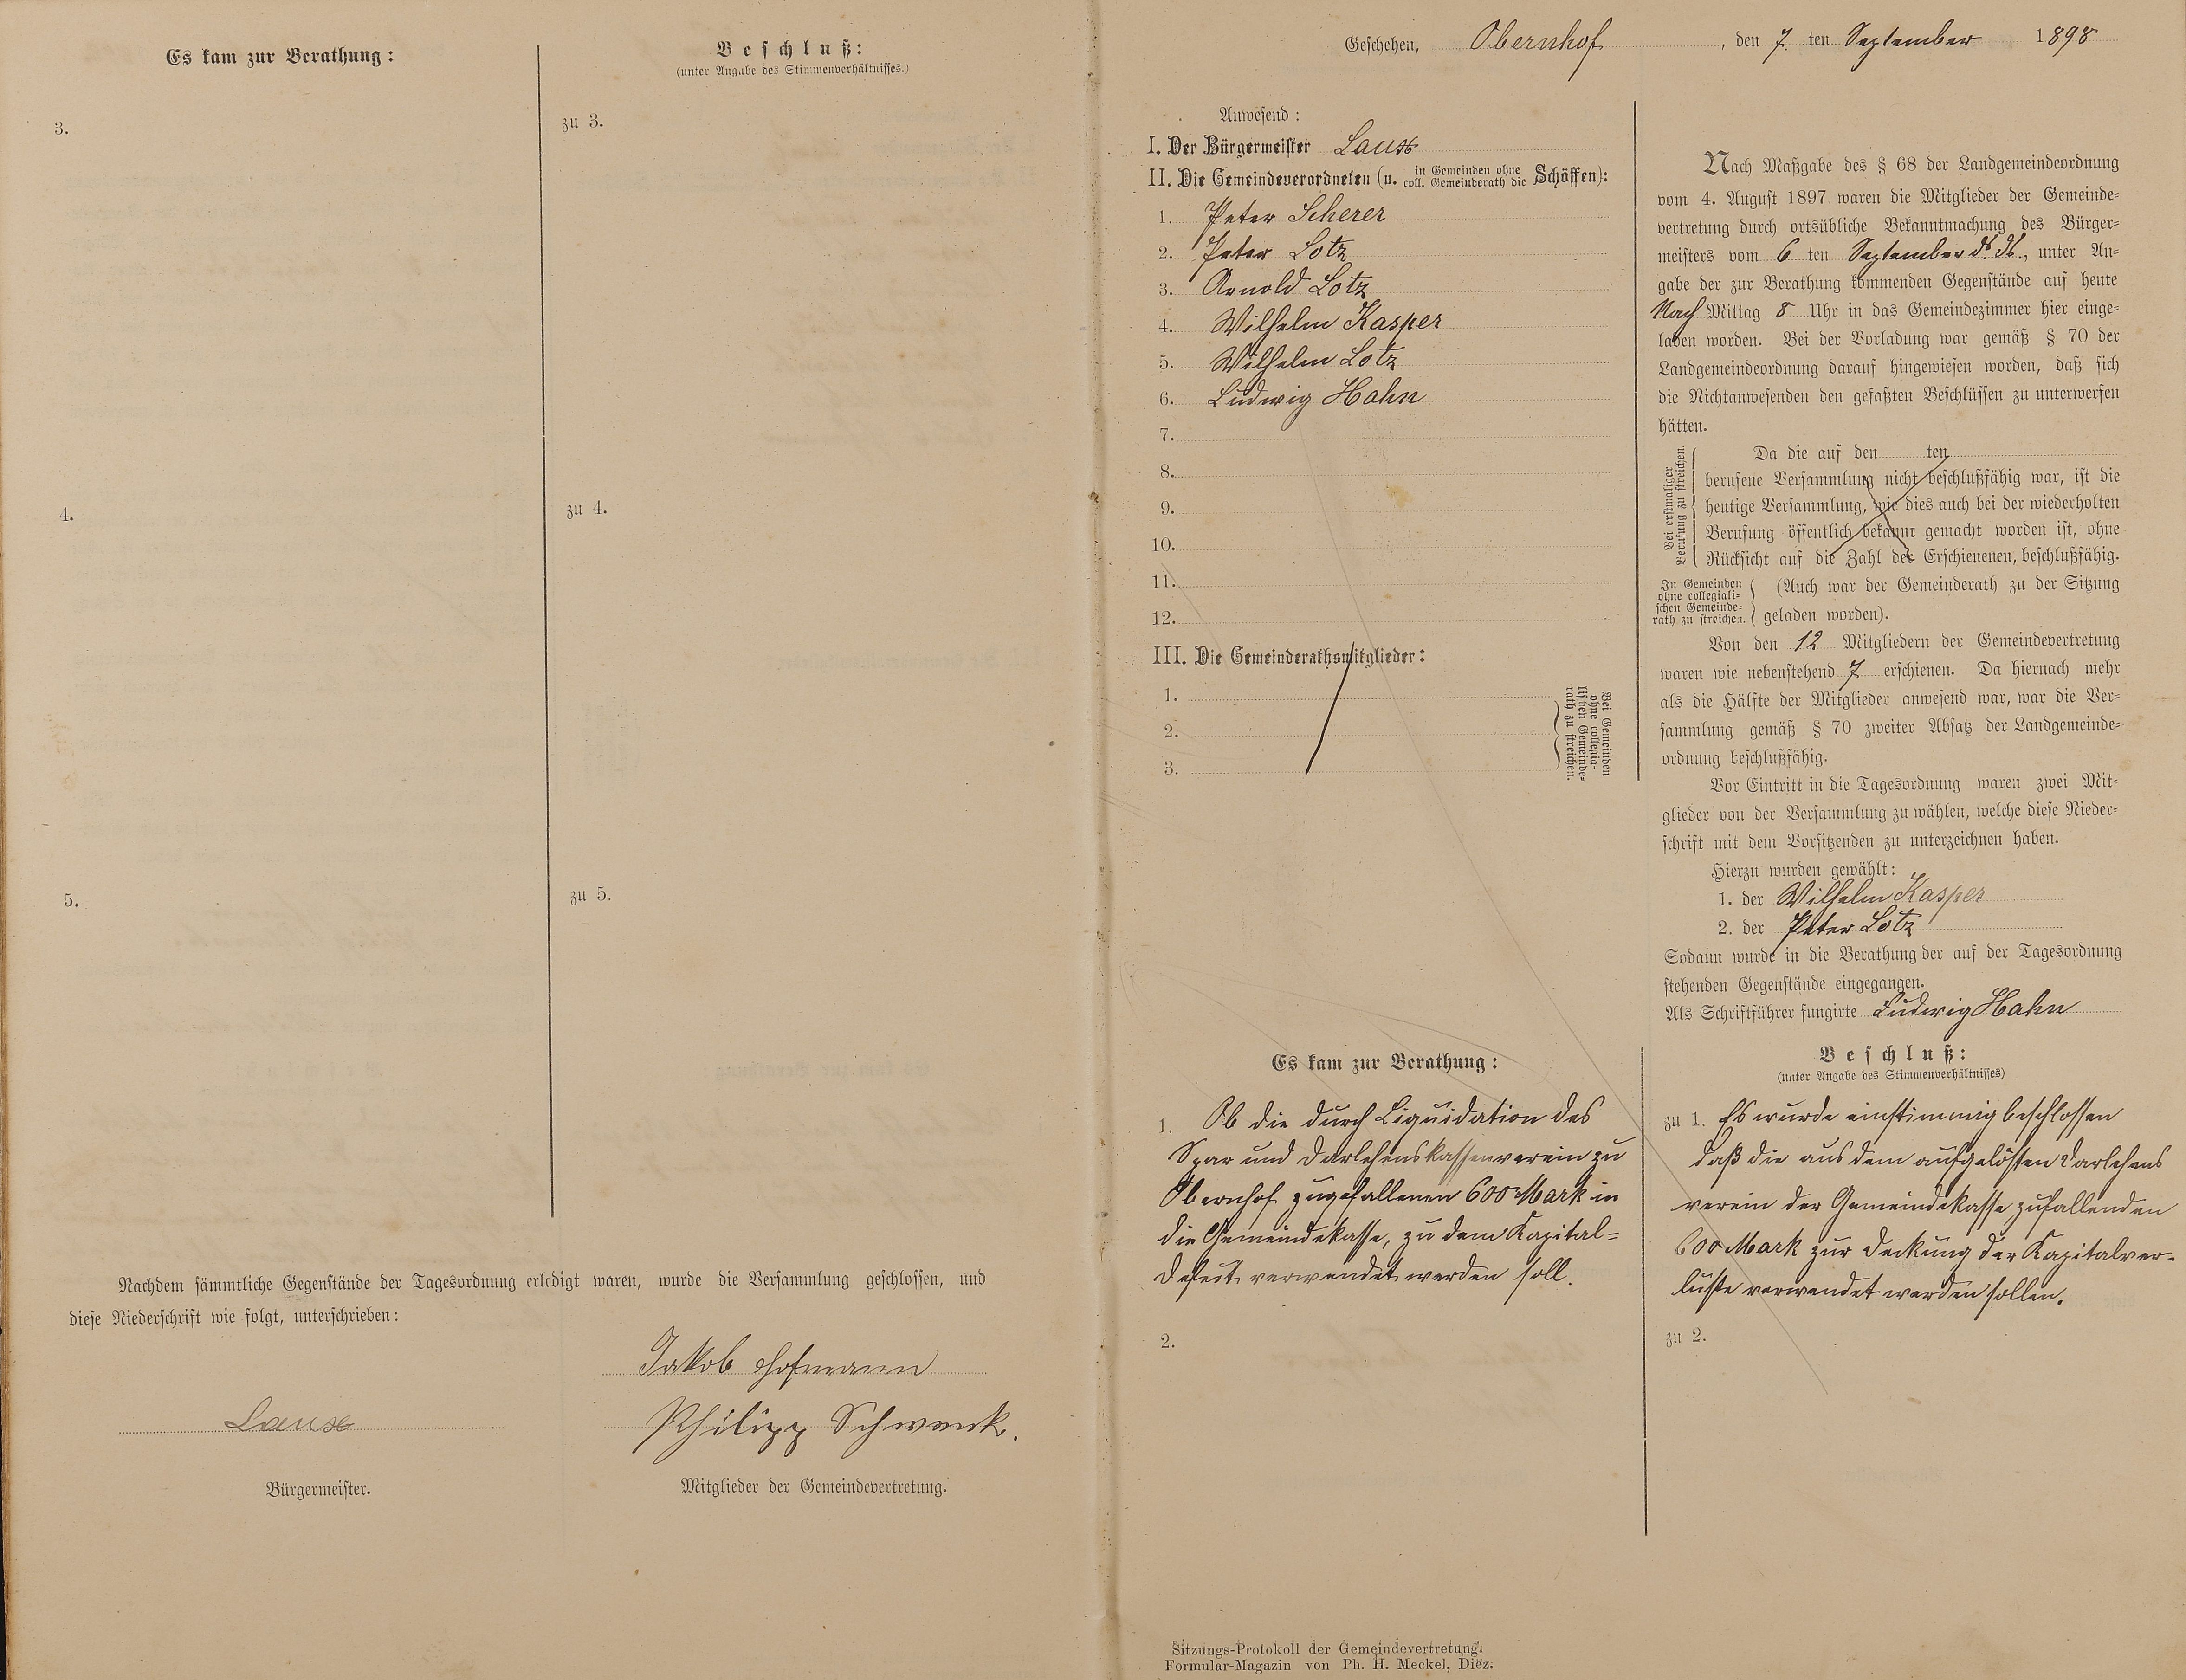 Es kam zur Berathung:
Beschluß:
(unter Angabe des Stimmenverhältnisses.)
3.
zu 3.
4.
zu 4.
5.
zu 5.
Nachdem sämmtliche Gegenstände der Tagesordnung erledigt waren, wurde die Versammlung geschlossen, und
diese Niederschrift wie folgt, unterschrieben:
Jakob Hofmann
Laux
Philipp Schwenk.
Bürgermeister.
Mitglieder der Gemeindevertretung.
Geschehen, Obernhof, den 7. ten September 1898
Anwesend:
I. Der Bürgermeister Laux
II. Die Gemeindeverordneten (u. in Gemeinden ohne coll. Gemeinderath die Schöffen):
1. Peter Scherer
2. Peter Lotz
3. Arnold Lotz
4. Wilhelm Kasper
5. Wilhelm Lotz
6. Ludwig Hahn
7.
8.
9.
10.
11.
12.
III. Die Gemeinderathsmitglieder:
1.
2.
3.
Bei Gemeinden
ohne collegia-
lischen Gemeinde-
rath zu streichen.
Nach Maßgabe des § 68 der Landgemeindeordnung
vom 4. August 1897 waren die Mitglieder der Gemeinde-
vertretung durch ortsübliche Bekanntmachung des Bürger-
meisters vom 6 ten September ds. Js., unter An-
gabe der zur Berathung kommenden Gegenstände auf heute
Nach Mittag 8 Uhr in das Gemeindezimmer hier einge-
laden worden. Bei der Vorladung war gemäß § 70 der
Landgemeindeordnung darauf hingewiesen worden, daß sich
die Nichtanwesenden den gefaßten Beschlüssen zu unterwerfen
hätten.
Bei erstmaliger
Berufung zu streichen.
Da die auf den ten
berufene Versammlung nicht beschlußfähig war, ist die
heutige Versammlung, wie dies auch bei der wiederholten
Berufung öffentlich bekannt gemacht worden ist, ohne
Rücksicht auf die Zahl der Erschienenen, beschlußfähig.
In Gemeinden
ohne collegiali-
schen Gemeinde-
rath zu streichen.
(Auch war der Gemeinderath zu der Sitzung
geladen worden).
Von den 12 Mitgliedern der Gemeindevertretung
waren wie nebenstehend 7 erschienen. Da hiernach mehr
als die Hälfte der Mitglieder anwesend war, war die Ver-
sammlung gemäß § 70 zweiter Absatz der Landgemeinde-
ordnung beschlußfähig.
Vor Eintritt in die Tagesordnung waren zwei Mit-
glieder von der Versammlung zu wählen, welche diese Nieder-
schrift mit dem Vorsitzenden zu unterzeichnen haben.
Hierzu wurden gewählt:
1. der Wilhelm Kasper
2. der Peter Lotz
Sodann wurde in die Berathung der auf der Tagesordnung
stehenden Gegenstände eingegangen.
Als Schriftführer fungirte Ludwig Hahn
Es kam zur Berathung:
1. Ob die durch Liquidation des
Spar und Darlehenskassenverein zu
Obernhof zugefallenen 600 Mark in
die Gemeindekasse, zu dem Kapital-
Defizit verwendet werden soll.
2.
Beschluß:
(unter Angabe des Stimmenverhältnisses)
zu 1. Es wurde einstimmig beschlossen
daß die aus dem aufgelößten Darlehens
verein der Gemeindekasse zufallenden
600 Mark zur Deckung der Kapitalver-
luste verwendet werden sollen.
zu 2.
Sitzungs-Protokoll der Gemeindevertretung.
Formular-Magazin von Ph. H. Meckel, Diez.